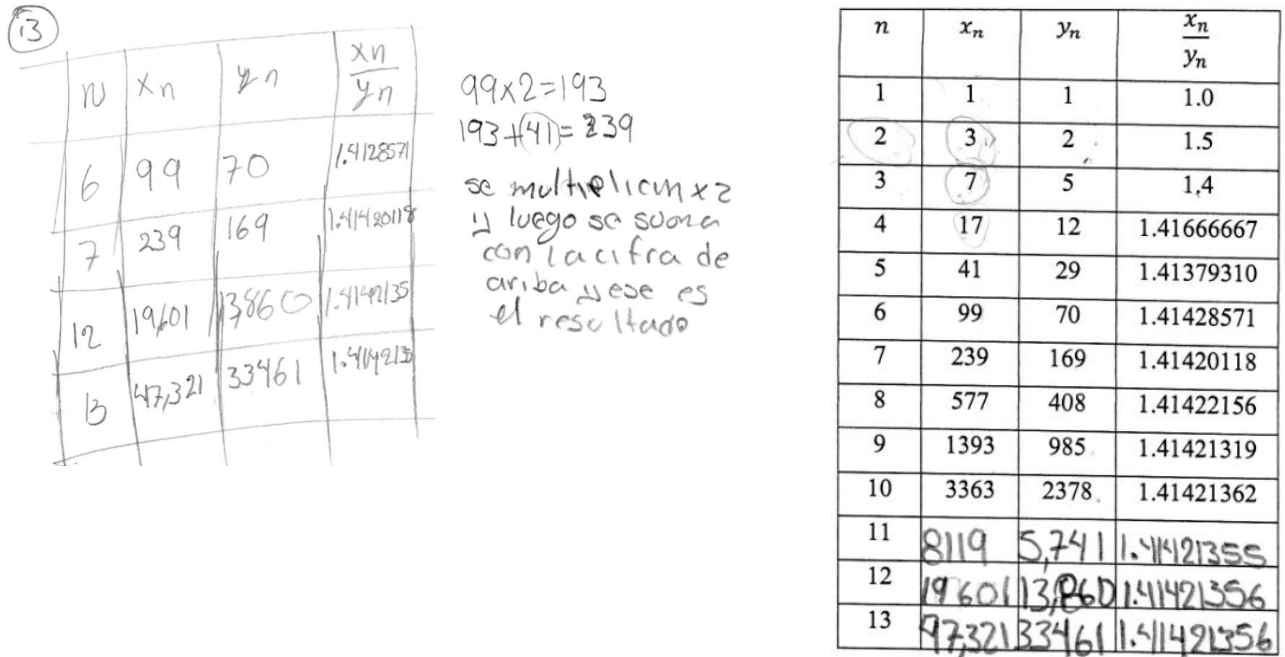 13
N xn yn xn/yn
6 99 70 1.4128571
7 239 169 1.41420118
12 19,601 13,860 1.4142135
13 47,321 33461 1.4142135
99x2=193
193+(41)=239
se multiplican x2
y luego se suma
con la cifra de
ariba y ese es
el resultado
n xn yn xn/yn
1 1 1 1.0
2 3 2 1.5
3 7 5 1.4
4 17 12 1.41666667
5 41 29 1.41379310
6 99 70 1.41428571
7 239 169 1.41420118
8 577 408 1.41422156
9 1393 985 1.41421319
10 3363 2378 1.41421362
11 8119 5,741 1.41421355
12 19601 13,860 1.41421356
13 47,321 33461 1.41421356